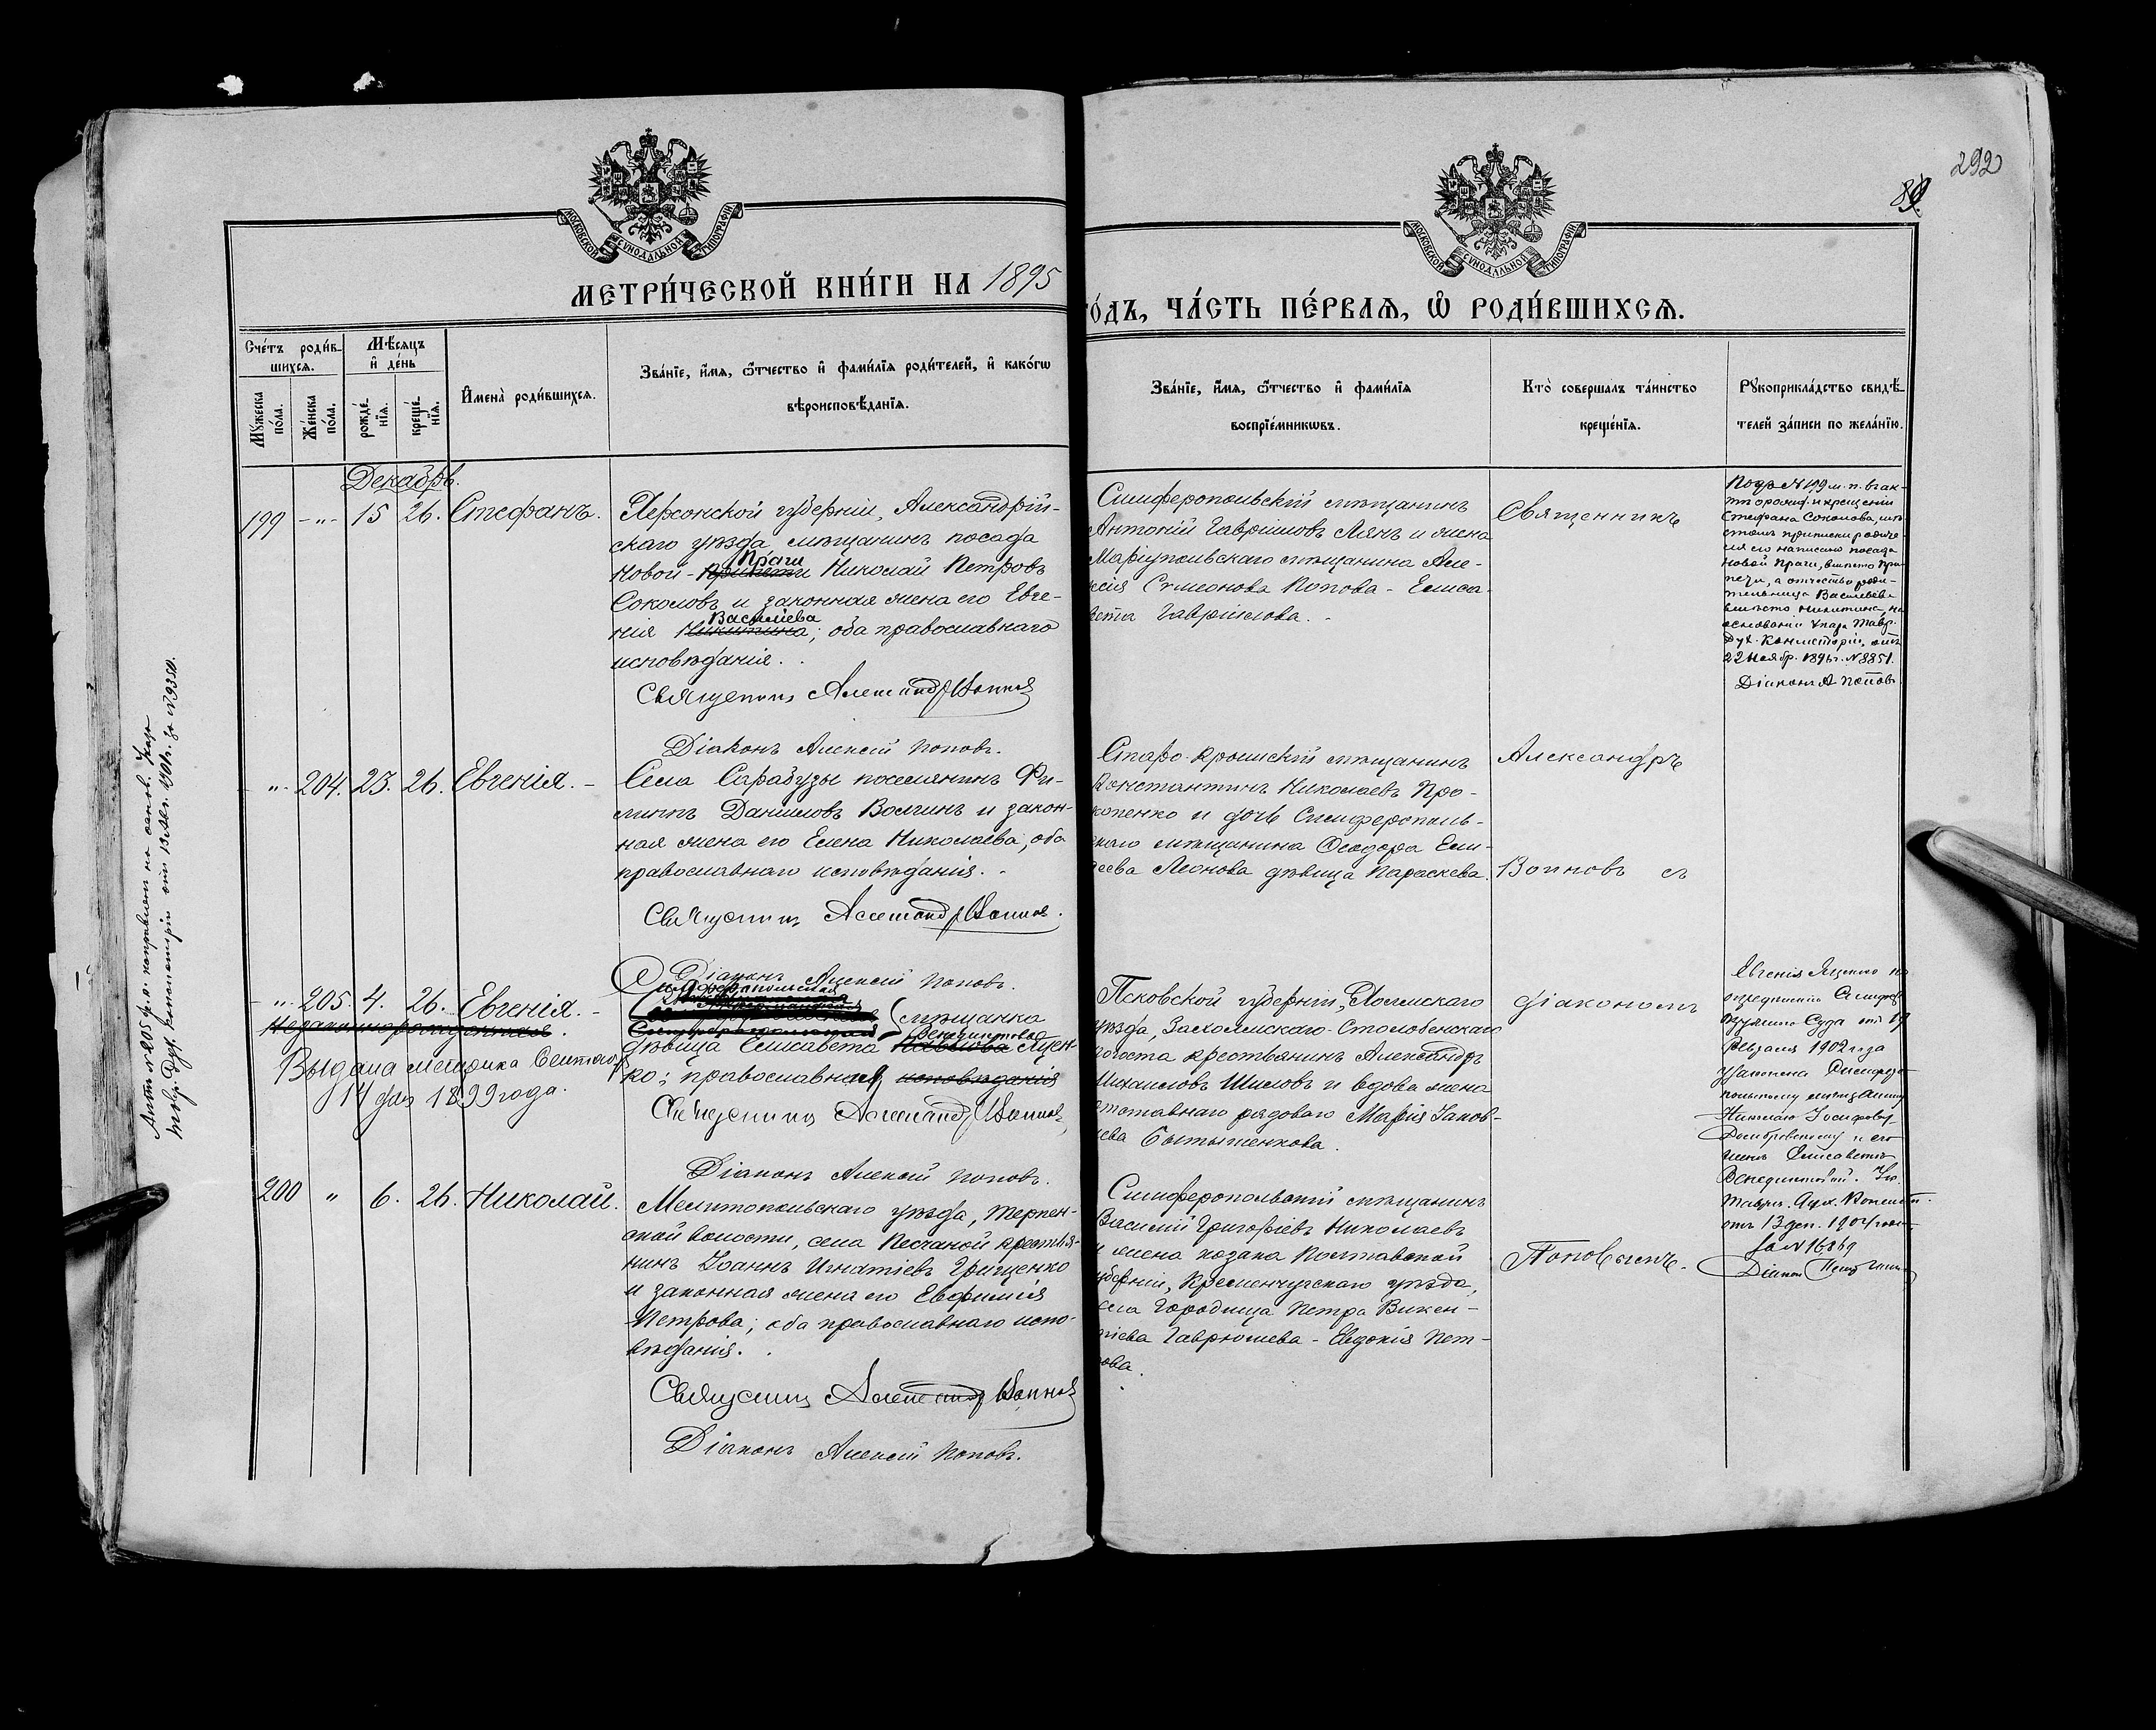 292
89.
МОСКОВСКОЙ СѴНОДАЛЬНОЙ ТИПОГРАФІИ
МОСКОВСКОЙ СѴНОДАЛЬНОЙ ТИПОГРАФІИ
МЕТРИ́ЧЕСКОЙ КНИ́ГИ НА 1895
ГО́ДЪ, ЧА́СТЬ ПЕ́РВАѦ, Ѡ҆ РОДИ́ВШИХСѦ.
Сче́тъ роди́в-
шихсѧ.
Мꙋ́жеска по́ла.
Же́нска по́ла.
Мѣ́сѧцъ
и҆ де́нь
рожде́-
нїѧ.
креще́-
нїѧ.
И҆мена̀ роди́вшихсѧ.
Зва́нїе, и҆́мѧ, ѻ҆́тчество и҆ фами́лїѧ роди́телей, и҆ како́гѡ
вѣроисповѣ́данїѧ.
Зва́нїе, и҆́мѧ, ѻ҆́тчество и҆ фами́лїѧ
воспрїе́мникѡвъ.
Кто̀ соверша́лъ та́инство
креще́нїѧ.
Рꙋкоприкла́дство свидѣ́-
телей за́писи по жела́нїю.
Декабрь.
199 -"- 15 26. Стефанъ.
Херсонской губерніи, Александрій-
скаго уѣзда мѣщанинъ посада
Праги
Новой- Николай Петровъ
Соколовъ и законная жена его Евге-
Василіева
нія Никитина; оба православнаго
исповѣданія.
Священникъ Александръ Воиновъ
Діаконъ Алексій Поповъ.
Симферопольскій мѣщанинъ
Антоній Гавріиловъ Лянъ и жена
Маріупольскаго мѣщанина Але-
ксія Сѵмеонова Попова - Елиса-
вета Гавріилова.
Священникъ
Подъ № 199 м. п. въ ак-
тѣ о рожд. и крещеніи
Стефана Соколова, мѣ-
стомъ приписки родите-
ля его написано посада
Новой Праги, вмѣсто При-
печи, а отчество роди-
тельницы Василіева
вмѣсто Никитина, на
основаніи указа Тавр.
Дух. Консисторіи, отъ
22 Ноябр. 1896 г. № 8851.
Діаконъ А Поповъ
" 204. 23. 26. Евгенія. -
Села Сарабузы поселянинъ Фи-
липпъ Даниловъ Волгинъ и закон-
ная жена его Елена Николаева, оба
православнаго исповѣданія.
Священникъ Александръ Воиновъ.
Діаконъ Алексій Поповъ.
Старо-Крымскій мѣщанинъ
Константинъ Николаевъ Про-
копенко и дочь Симферополь-
скаго мѣщанина Ѳеодора Ели-
сеева Леонова дѣвица Параскева.
Александръ
Воиновъ съ
" 205. 4. 26. Евгенія. -
Незаконнорожденная.
Выдана метрика Сентября
14 дня 1899 года.
Симферопольская
мѣщанка
Венедиктова
дѣвица Елисавета Павлова Яцен-
ко; православная исповѣданія
Священникъ Александръ Воиновъ
Діаконъ Алексій Поповъ.
Псковской губерніи, Холмскаго
уѣзда, Захолмскаго-Столобенскаго
погоста крестьянинъ Александръ
Михаиловъ Шиловъ и вдова жена
отставнаго рядоваго Марія Іаков-
лева Сытытенкова.
діакономъ
Евгенія Яценко по
опредѣленію Симфер.
Окружнаго Суда отъ 19
Февраля 1902 года
узаконена Симферо-
польскому мѣщанину
Николаю Іосифову
Домбровскому и его
женѣ Елисаветѣ
Венедиктовой. Ук.
Таврич. Дух. Консист.
отъ 13 дек. 1904 года
за № 16869
Діаконъ
200 " 6. 26. Николай.
Мелитопольскаго уѣзда, Терпен-
ской волости, села Песчаной крестья-
нинъ Іоаннъ Игнатіевъ Грищенко
и законная жена его Евфимія
Петрова; оба православнаго испо-
вѣданія.
Священникъ Александръ Воиновъ
Діаконъ Алексій Поповъ.
Симферопольскій мѣщанинъ
Василій Григоріевъ Николаевъ
и жена козака Полтавской
губерніи, Кременчугскаго уѣзда,
села Городища Петра Викен-
тіева Гаврюшева - Евдокія Пет-
рова.
Поповымъ.
Актъ № 205 ж. п. исправленъ на основ. Указа
Тавр. Дух. Консисторіи отъ 13 Авг. 1901 г. за № 9350.